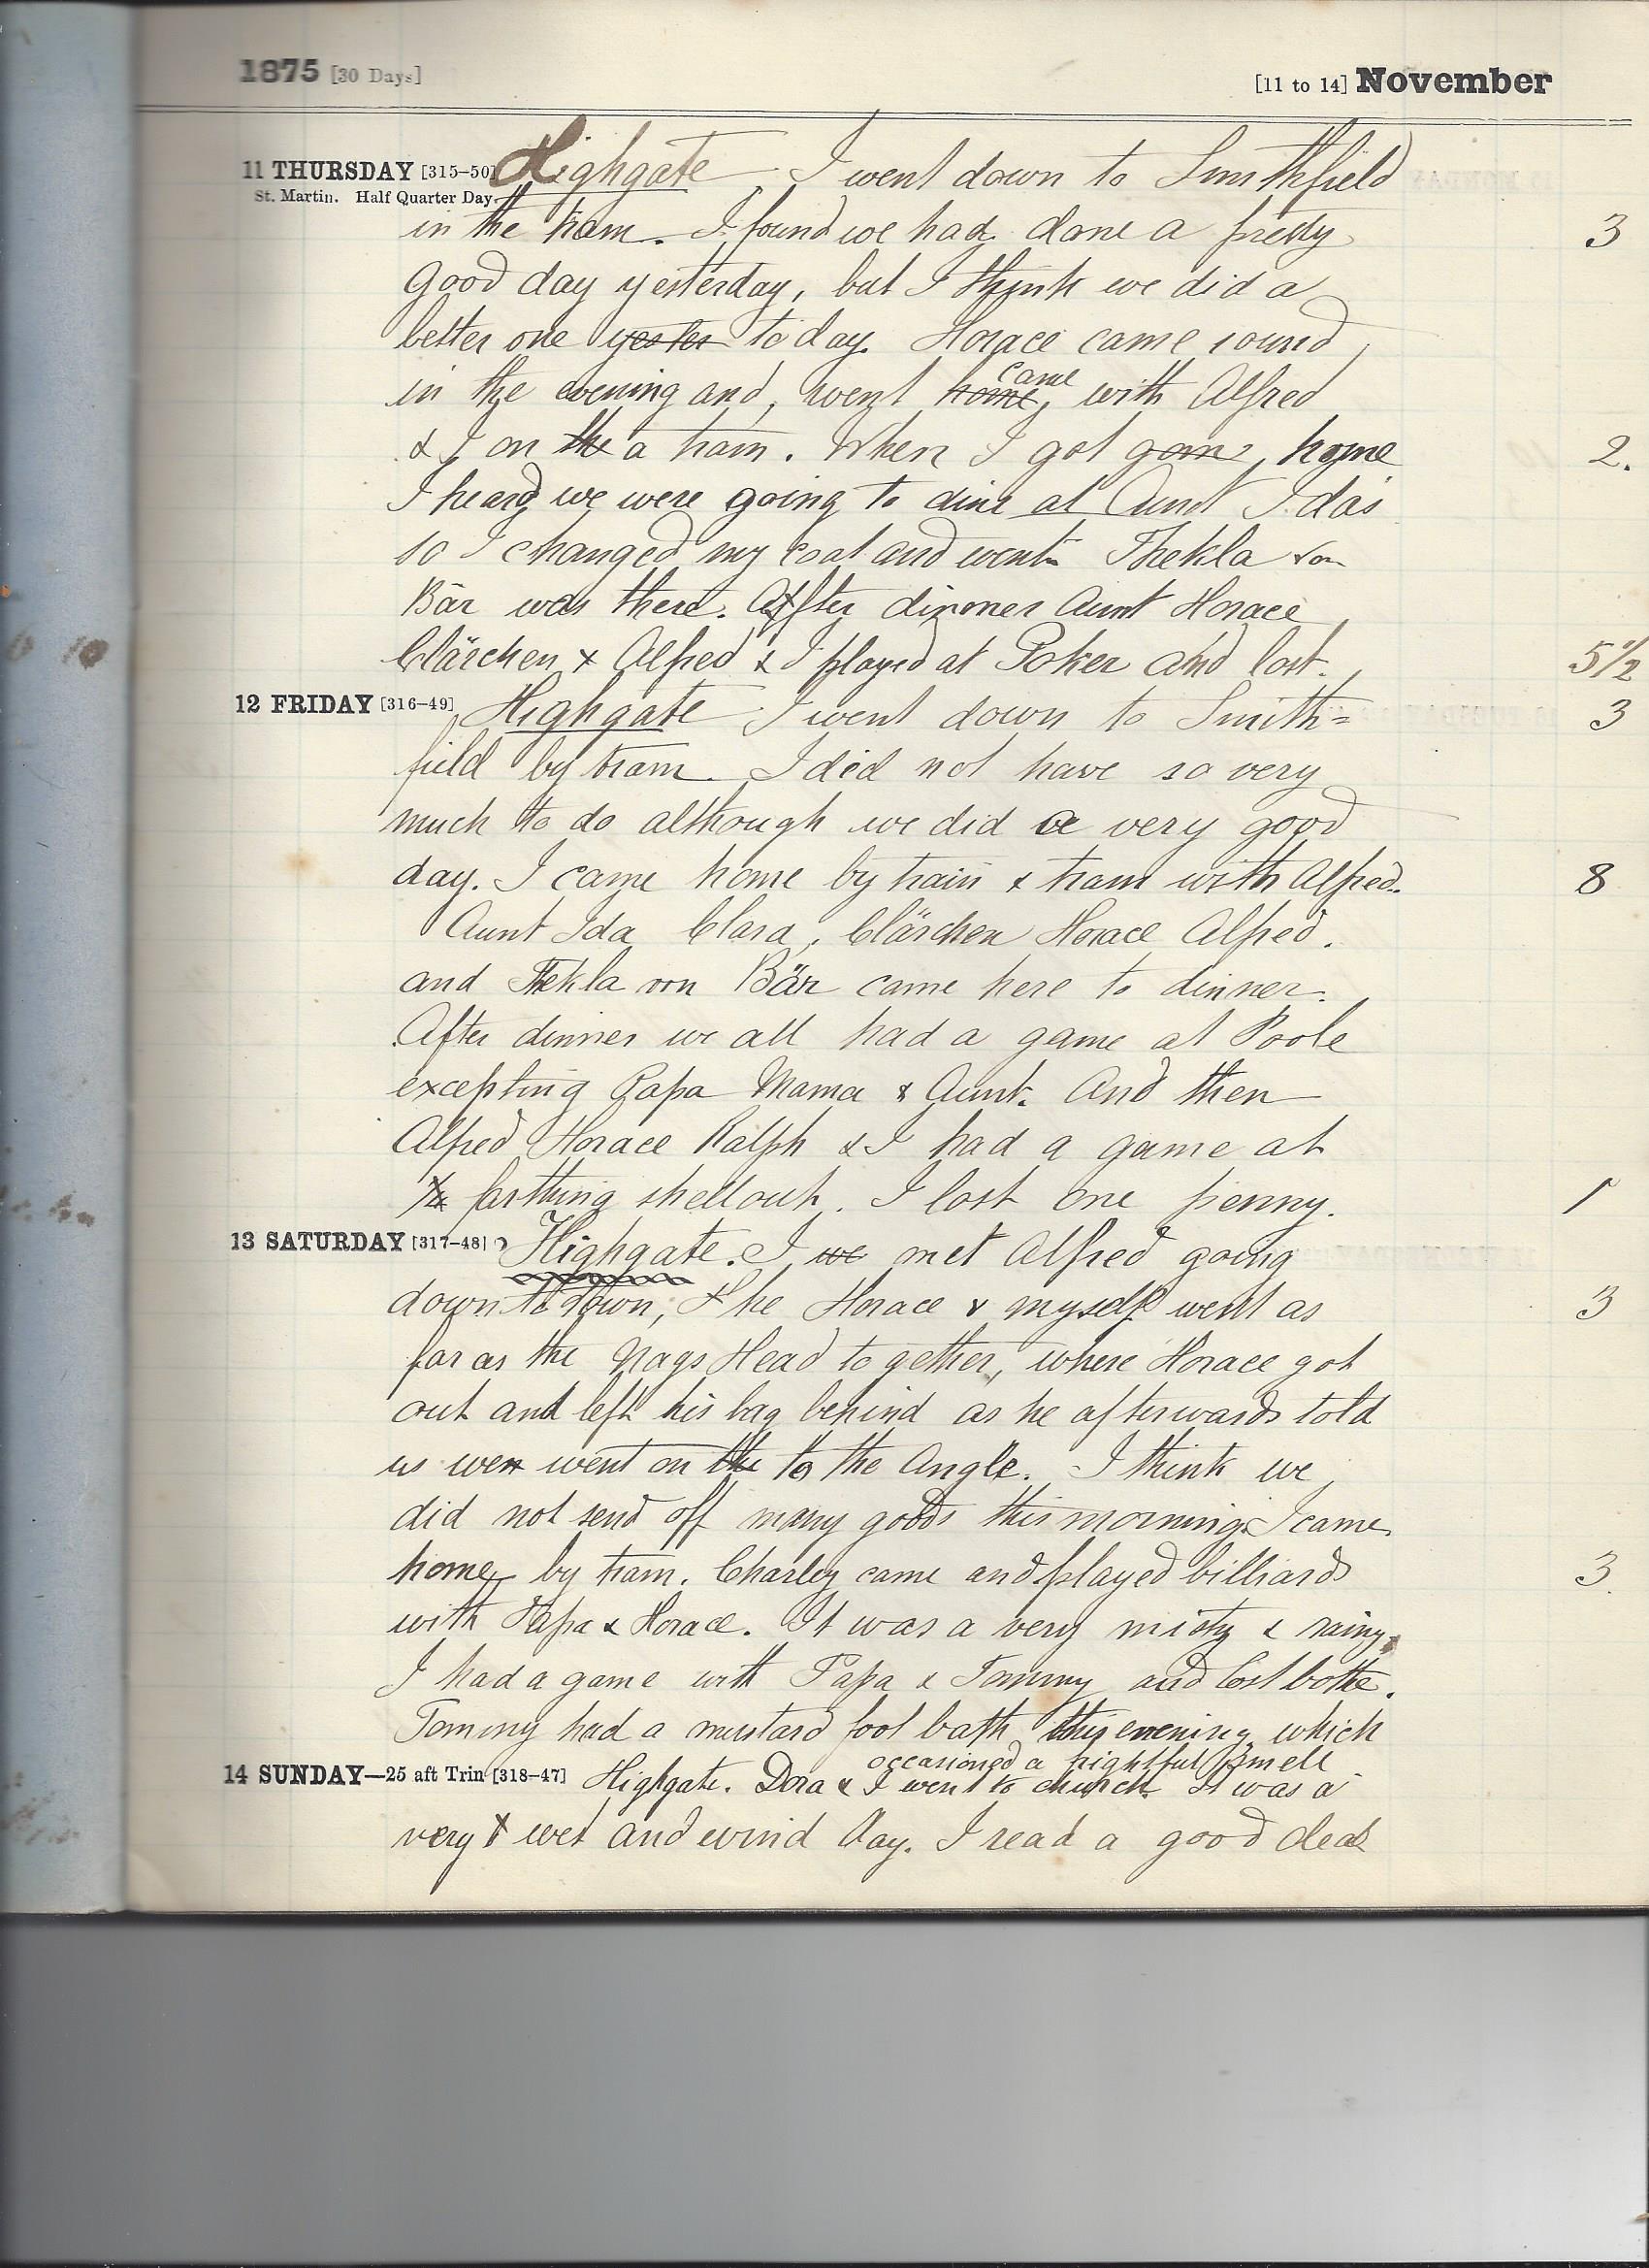 1875 [30 Days] [11 to 14] November
11 THURSDAY [315-50] Highgate I went down to Smithfield
St. Martin. Half Quarter Day
in the tram. I found we had done a pretty 3
good day yesterday, but I think we did a
better one yester to day. Horace came round
in the evening and, went home came with Alfred
& I on the a tram. When I got gom home 2.
I heard we were going to dine at Aunt Ida's
so I changed my coat and went. Thekla von
Bär was there. After dinner Aunt Horace
Clärchen & Alfred & I played at Poker and lost. 5 1/2
12 FRIDAY [316-49] Highgate I went down to Smith= 3
field by tram. I did not have so very
much to do although we did a very good
day. I came home by train & tram with Alfred. 8
Aunt Ida Clara, Clärchen Horace Alfred.
and Thekla von Bär came here to dinner.
After dinner we all had a game at Poole
excepting Papa Mama & Aunt. And then
Alfred Horace Ralph & I had a game at
farthing shellout. I lost one penny. 1
13 SATURDAY [317-48] Highgate. I we met Alfred going
down to down, & he Horace & myself went as 3
far as the Nags Head together, where Horace got
out and left his bag behind as he afterwards told
us wen went on the to the Angle. I think we
did not send off many goods this morning. I came
home by tram. Charley came and played billiards 3.
with Papa & Horace. It was a very misty & rainy.
I had a game with Papa & Tommy and lost bothe.
Tommy had a mustard foot bath this evening which
occasioned a frightful smell
14 SUNDAY—25 aft Trin [318-47] Highgate. Dora & I went to church. It was a
very wet and wind day. I read a good deal